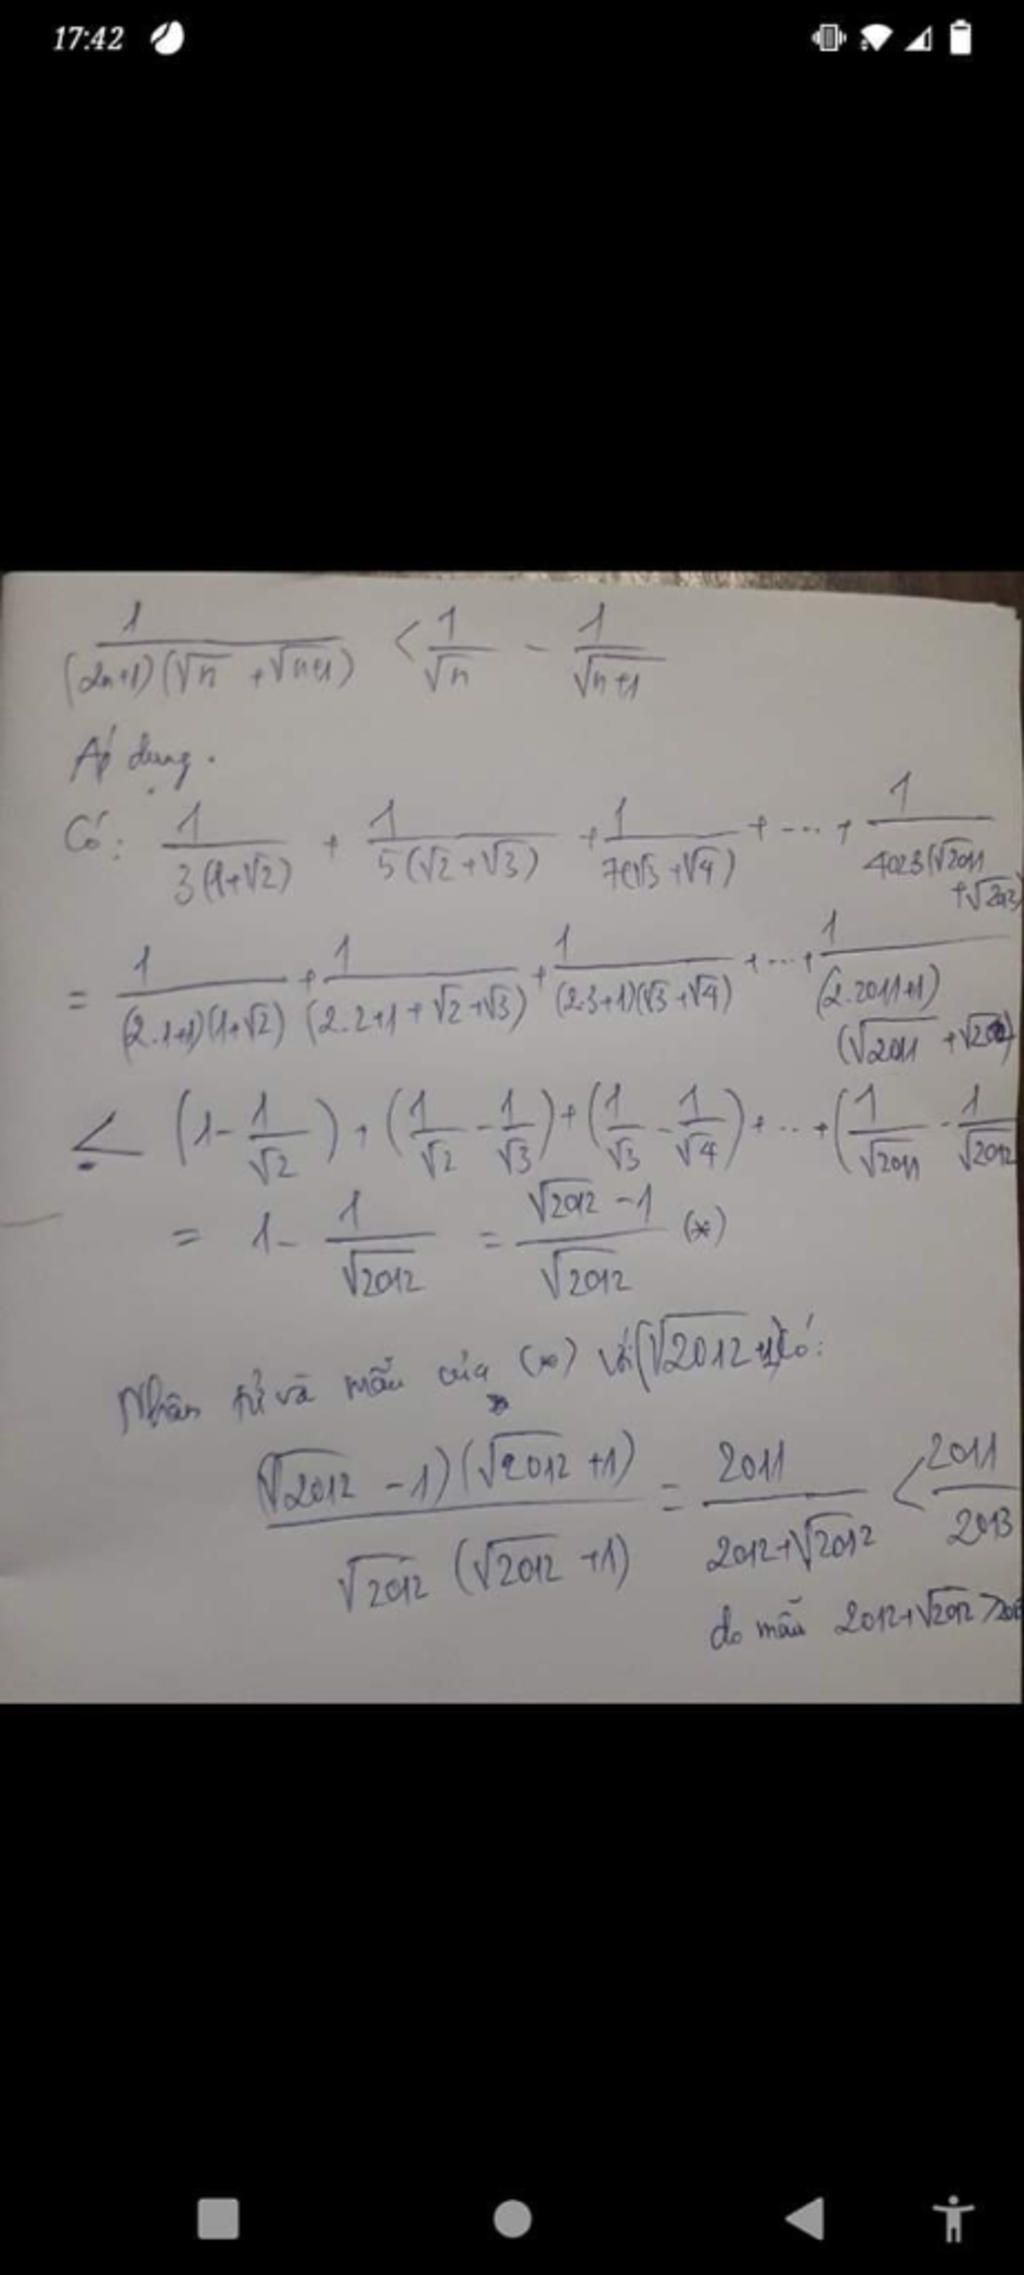 17:42
1/((2n+1)(√n + √n+1)) < 1/√n - 1/√n+1
Áp dụng.
Có: 1/(3(1+√2)) + 1/(5(√2+√3)) + 1/(7(√3+√4)) + ... + 1/(4023(√2011
= 1/((2.1+1)(1+√2)) + 1/((2.2+1+√2+√3)) + 1/((2.3+1)(√3+√4)) + ... + 1/((2.2011+1)
< (1 - 1/√2) + (1/√2 - 1/√3) + (1/√3 - 1/√4) + ... + (1/√2011 - 1/√2012
= 1 - 1/√2012 = (√2012 - 1)/√2012 (*)
Nhân tử và mẫu của (*) với (√2012+1) có:
(√2012 - 1)(√2012 + 1)/(√2012 (√2012 + 1)) = 2011/(2012+√2012) < 2011/2013
do mẫu 2012+√2012 >